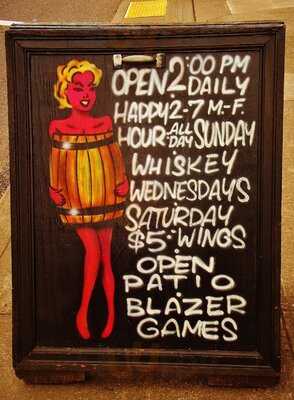 OPEN 2:00 PM DAILY
HAPPY 2-7 M.-F.
HOUR: ALL DAY SUNDAY
WHISKEY
WEDNESDAYS
SATURDAY
$5: WINGS
OPEN
PATIO
BLAZER
GAMES